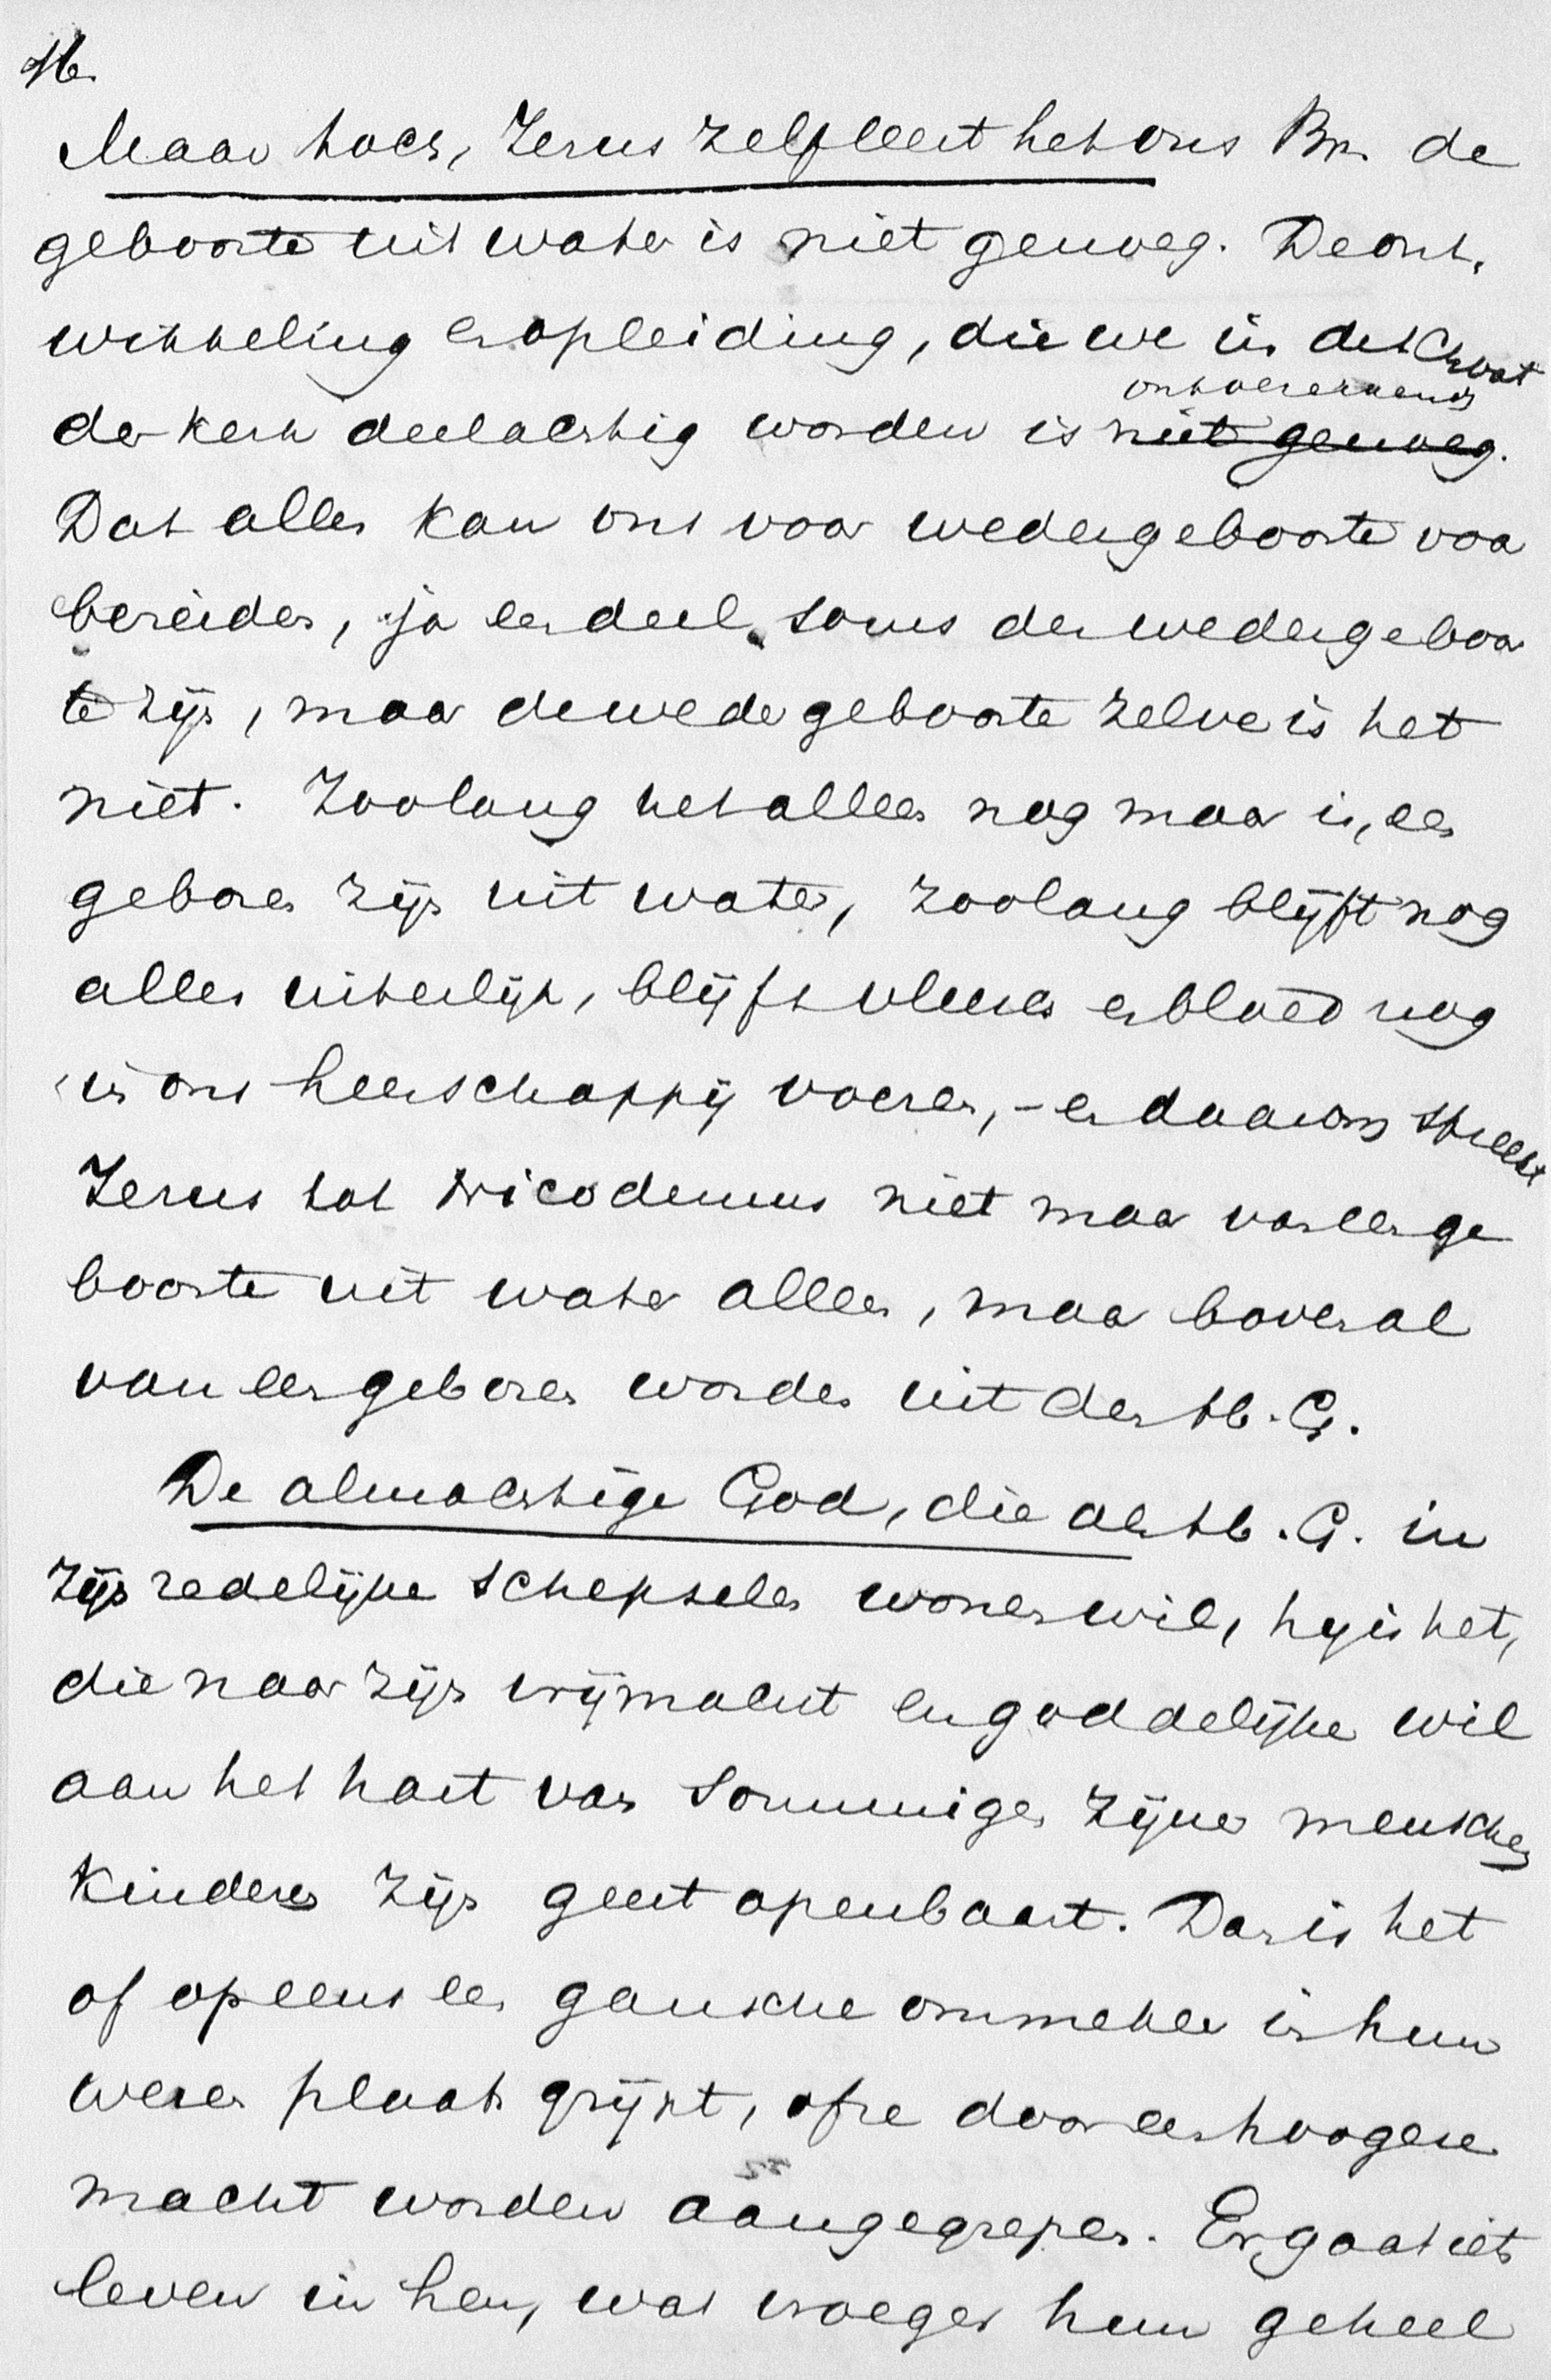 16.
Maar toch, Jezus zelf leert het ons Br. de
geboorte uit water is niet genoeg. De ont-
wikkeling en opleiding, die we in de schoot
der kerk deelachtig worden is onvoldoende niet genoeg.
Dat alles kan ons voor wedergeboorte voor
bereiden, ja een deel soms der wedergeboor
te zijn, maar de wedergeboorte zelve is het
niet. Zoolang het alles nog maar is, een
geboren zijn uit water, zoolang blijft nog
alles uiterlijk, blijft vleesch en bloed nog
in ons heerschappij voeren, - en daarom spreekt
Jezus tot Nicodemus niet maar van een ge
boorte uit water alleen, maar bovenal
van een geboren worden uit den H. G.
De almachtige God, die als H. G. in
zijn redelijke schepselen wonen wil, hij is het,
die naar zijn vrijmacht en goddelijke wil
aan het hart van sommige zijner menschen
kinderen zijn geest openbaart. Dan is het
of opeens een gansche ommekeer in hun
wezen plaats grijpt, of ze door een hoogere
macht worden aangegrepen. Er gaat iets
leven in hen, wat vroeger hun geheel